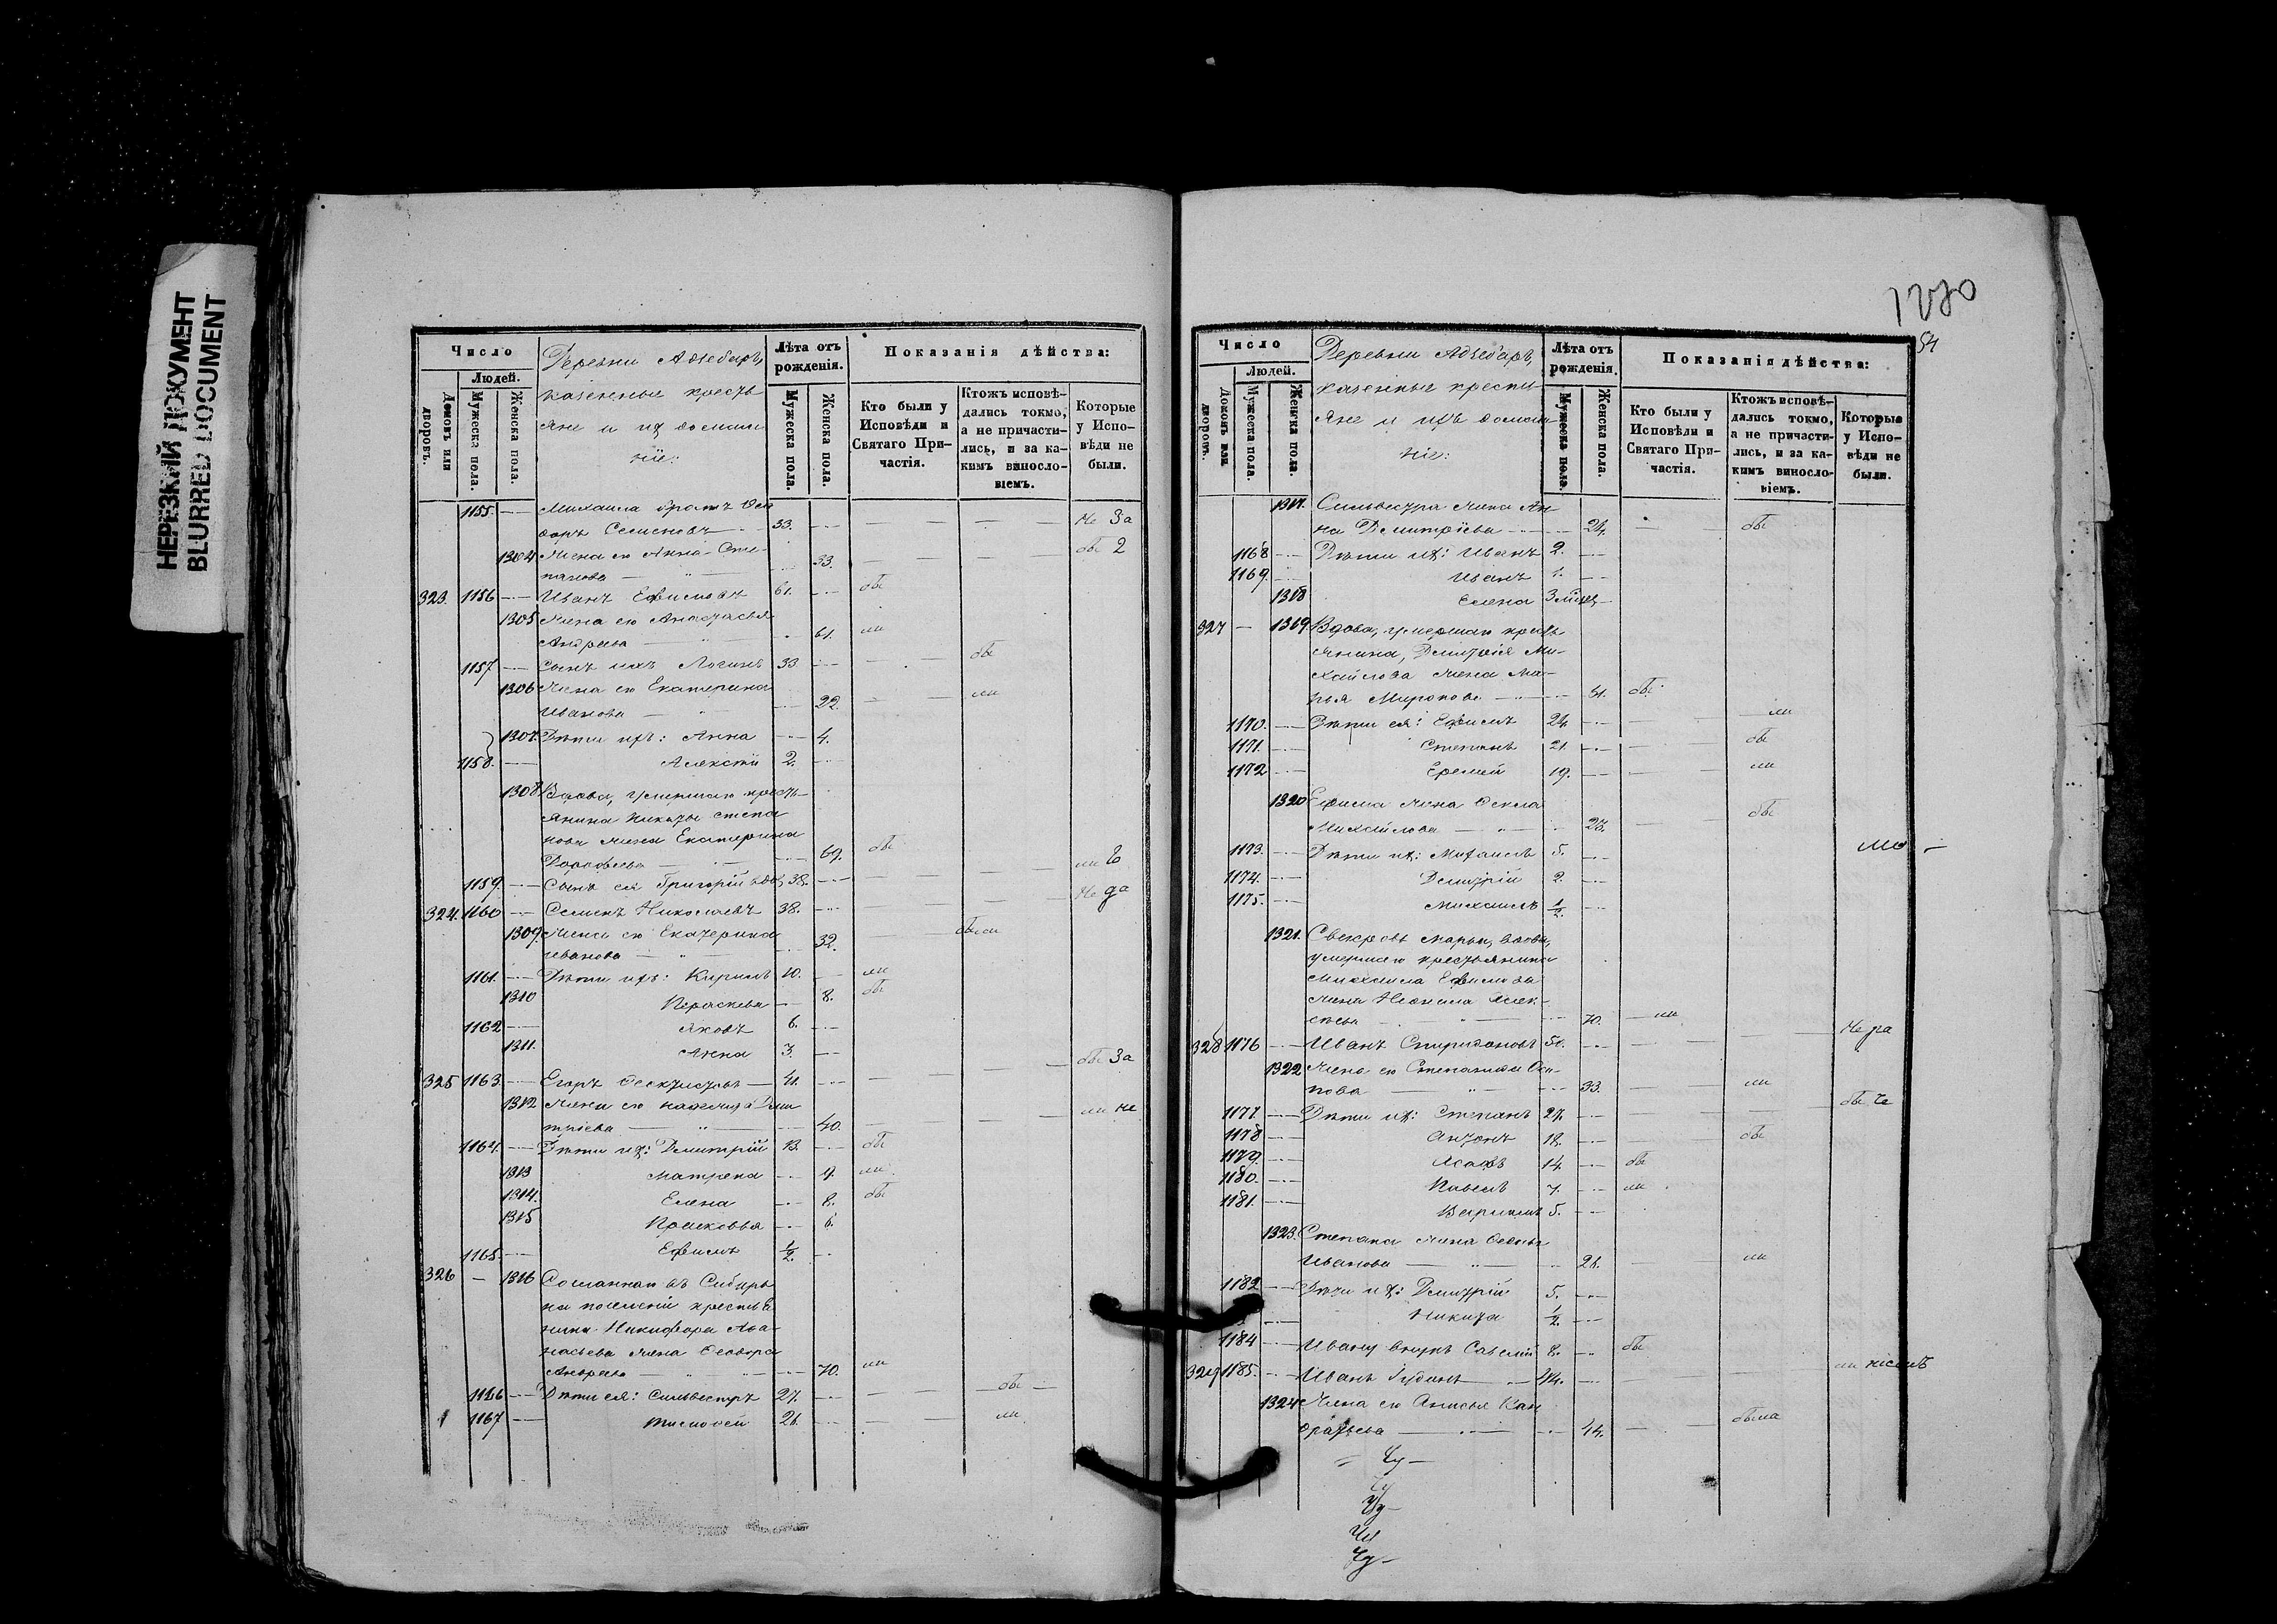 НЕРЕЗКИЙ ДОКУМЕНТ
BLURRED DOCUMENT
Число
Людей.
Домовъ или дворовъ.
Мужеска пола.
Женска пола.
Деревни
казенные кресть
яне и их домаш
нiе:
Лѣта отъ рожденія.
Мужеска пола.
Женска пола.
Показанія дѣйства:
Кто были у Исповѣди и Святаго При-
частія.
Ктожъ исповѣ-
дались токмо,
а не причасти-
лись, и за ка-
кимъ винословіемъ.
Которые у Испо-
вѣди не были.
1155. Михаила братъ
Семеновъ 33.
1304 Жена его Анна Сте-
панова 33.
323. 1156 Иванъ Ефимовъ 61. бы
1305 Жена его Анастасья
Андреева 61. ли
1157 Сынъ ихъ Логинъ 33 бы
1306 Жена его Екатерина
Иванова 22. ли
1307. Дѣти ихъ: Анна 4.
1158. Алексѣй 2.
1308 Вдова, умершаго кресть-
янина Никиты Степа
нова жена Екатерина
69. бы
1159. Сынъ ея Григорій вдов, 38.
324. 1160 Семенъ Николаевъ 38.
1309. Жена его Екатерина
Иванова 32. были
1161. Дѣти ихъ: Кирилъ 10. ли
1310 Параскева 8. бы
1162 Яковъ 6.
1311. Анна 3.
325 1163 Егоръ 41.
1312 Жена его Дми
тріева 40.
1164. Дѣти их: Димитрій 13. бы
1313 Матрена 9. ли
1314. Елена 8. бы
1315 Прасковья 6.
1165. Ефимъ 1/2.
326 1316 Сосланнаго въ Сибирь
на поселеніе крестья
нина Никифора Афа-
насьева жена Ѳеодора
Андреева 70. ли
1166 Дѣти ея: Сильвестръ 27. бы
1167 Тимофей 21. ли
1270
54
Число
Людей.
Домовъ или дворовъ.
Мужеска пола.
Женска пола.
Деревни
казенные крестья
яне и ихъ домаш
нiе:
Лѣта отъ рожденія.
Мужеска пола.
Женска пола.
Показанія дѣйства:
Кто были у Исповѣди и Святаго При-
частія.
Ктожъ исповѣ-
дались токмо,
а не причасти-
лись, и за ка-
кимъ винословіемъ.
Которые у Испо-
вѣди не были.
1317. Сильвестра жена Ан-
на Дмитріева 24. бы
1168 Дѣти их: Иванъ 2.
1169. Иванъ 1.
1318 Елена
327 1319. Вдова, умершаго кресть
янина, Димитрія Ми-
хайлова жена Ма-
рья Миронова 51. бы
1170. Дѣти ея: Ефимъ 24. ли
1171. Степанъ 21. бы
1172 Еремей 19. ли
1320 Ефима жена Ѳекла
Михайлова 23. бы
1173. Дѣти их: Михаилъ 5.
1174. Димитрій 2.
1175. Михаилъ 1/2.
1321. Свекровь Марьи, вдова,
умершаго крестьянина
Михаила Ефимова
жена Неонила Алек-
сѣева 70. ли
328 1176 Иванъ Спиридоновъ 50.
1322 Жена его Степанида Оси-
пова 33. ли
1177. Дѣти их: Степанъ 27.
1178 Антонъ 18. бы
1179. 14. бы
1180. Павелъ 7. ли
1181. Кирилъ 5.
1323. Степана жена
Иванова 26. ли
1182 Дѣти их: Димитрій 5.
Никита 1/2.
1184 Ивану внукъ Савелій 8. бы
329 1185. Иванъ 44.
1324 Жена его Анисья Кан
дратьева 44. была